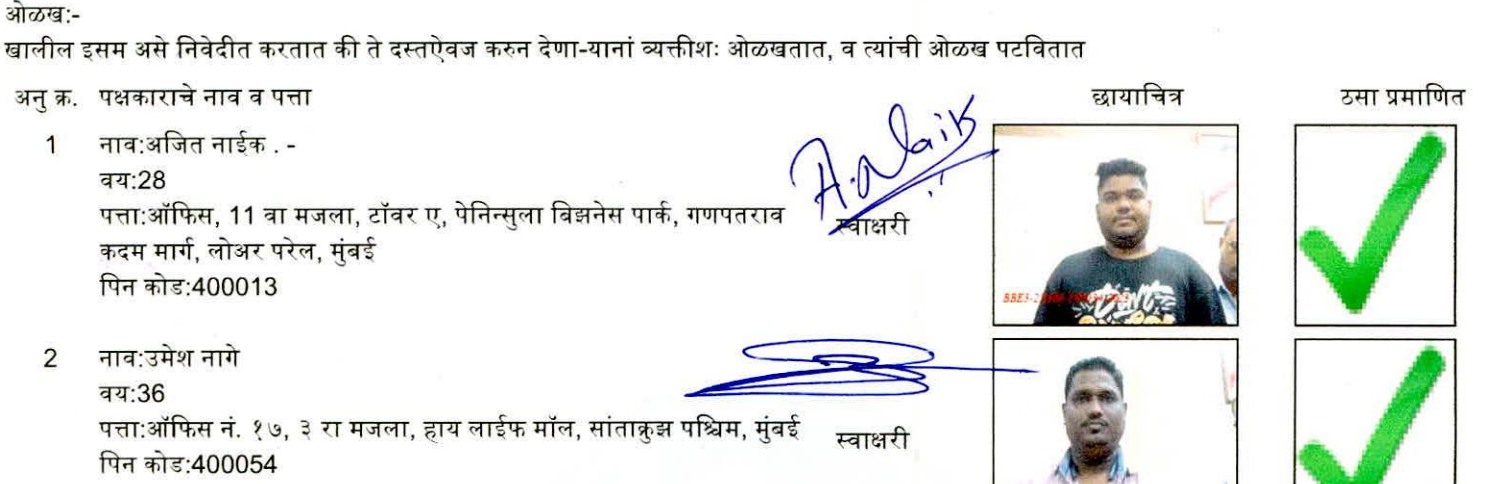 ओळख:-
खालील इसम असे निवेदीत करतात की ते दस्तऐवज करुन देणा-यानां व्यक्तीशः ओळखतात, व त्यांची ओळख पटवितात
अनु क्र. पक्षकाराचे नाव व पत्ता छायाचित्र ठसा प्रमाणित
1 नाव:अजित नाईक . -
वय:28
पत्ता:ऑफिस, 11 वा मजला, टॉवर ए, पेनिन्सुला बिझनेस पार्क, गणपतराव
कदम मार्ग, लोअर परेल, मुंबई
पिन कोड:400013
A.Naik
स्वाक्षरी
2 नाव:उमेश नागे
वय:36
पत्ता:ऑफिस नं. १७, ३ रा मजला, हाय लाईफ मॉल, सांताक्रुझ पश्चिम, मुंबई
पिन कोड:400054
स्वाक्षरी